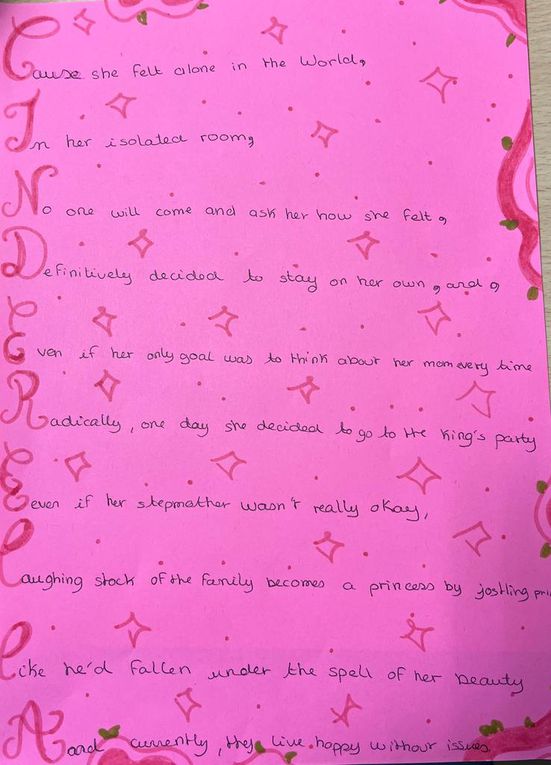 Cause she felt alone in the World,
In her isolated room,
No one will come and ask her how she felt,
Definitively decided to stay on her own, and,
Even if her only goal was to think about her mom every time
Radically, one day she decided to go to the King's party
Eeven if her stepmother wasn't really okay,
Laughing stock of the family becomes a princess by jostling
Like he'd fallen under the spell of her beauty
Aand currently, they live happy without issues